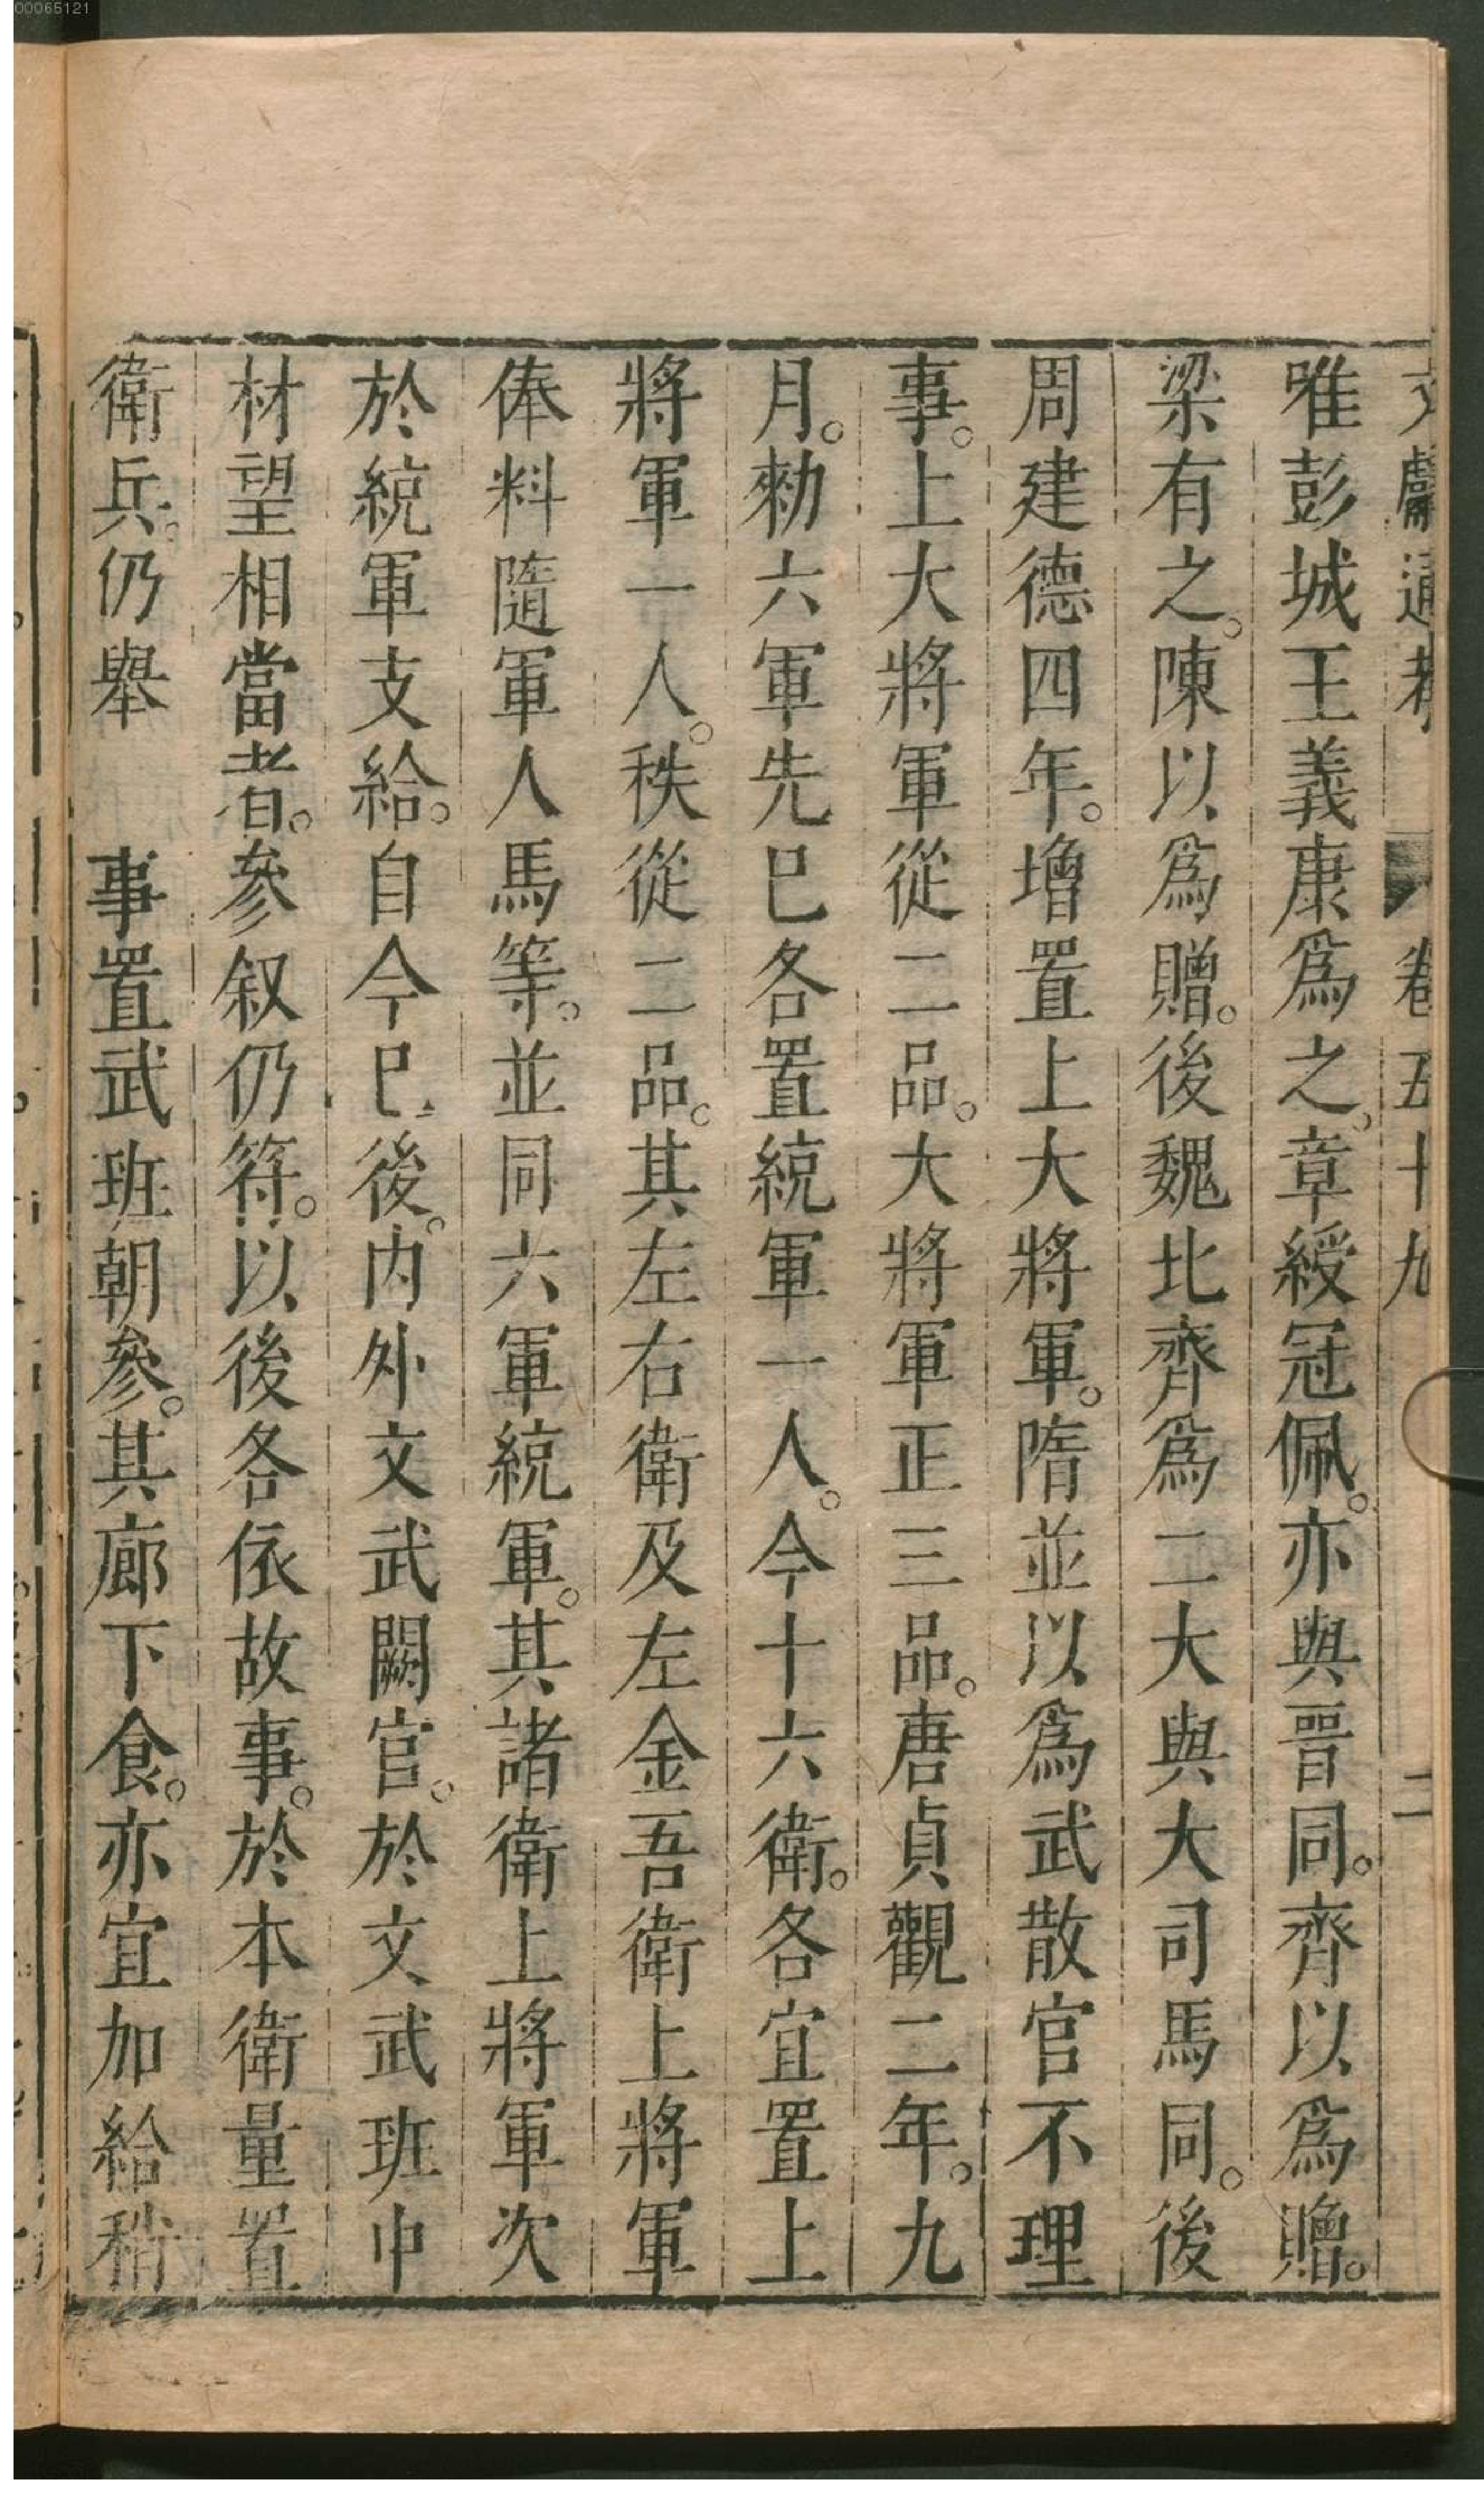 00065121
文獻通考 卷五十九 二
唯彭城王義康爲之。章綬冠佩。亦與晋同。齊以爲贈。
梁有之。陳以爲贈。後魏北齊爲二大與大司馬同。後
周建德四年。增置上大將軍。隋並以爲武散官不理
事。上大將軍從二品。大將軍正三品。唐貞觀二年。九
月。勑六軍先巳各置統軍一人。今十六衛。各宜置上
將軍一人。秩從二品。其左右衛及左金吾衛上將軍
俸料隨軍人馬等。並同六軍統軍。其諸衛上將軍次
於統軍支給。自今巳後。内外文武闕官。於文武班中
材望相當者。參叙仍符。以後各依故事。於本衛量置
衛兵。仍舉 事置武班朝參。其廊下食。亦宜加給稍